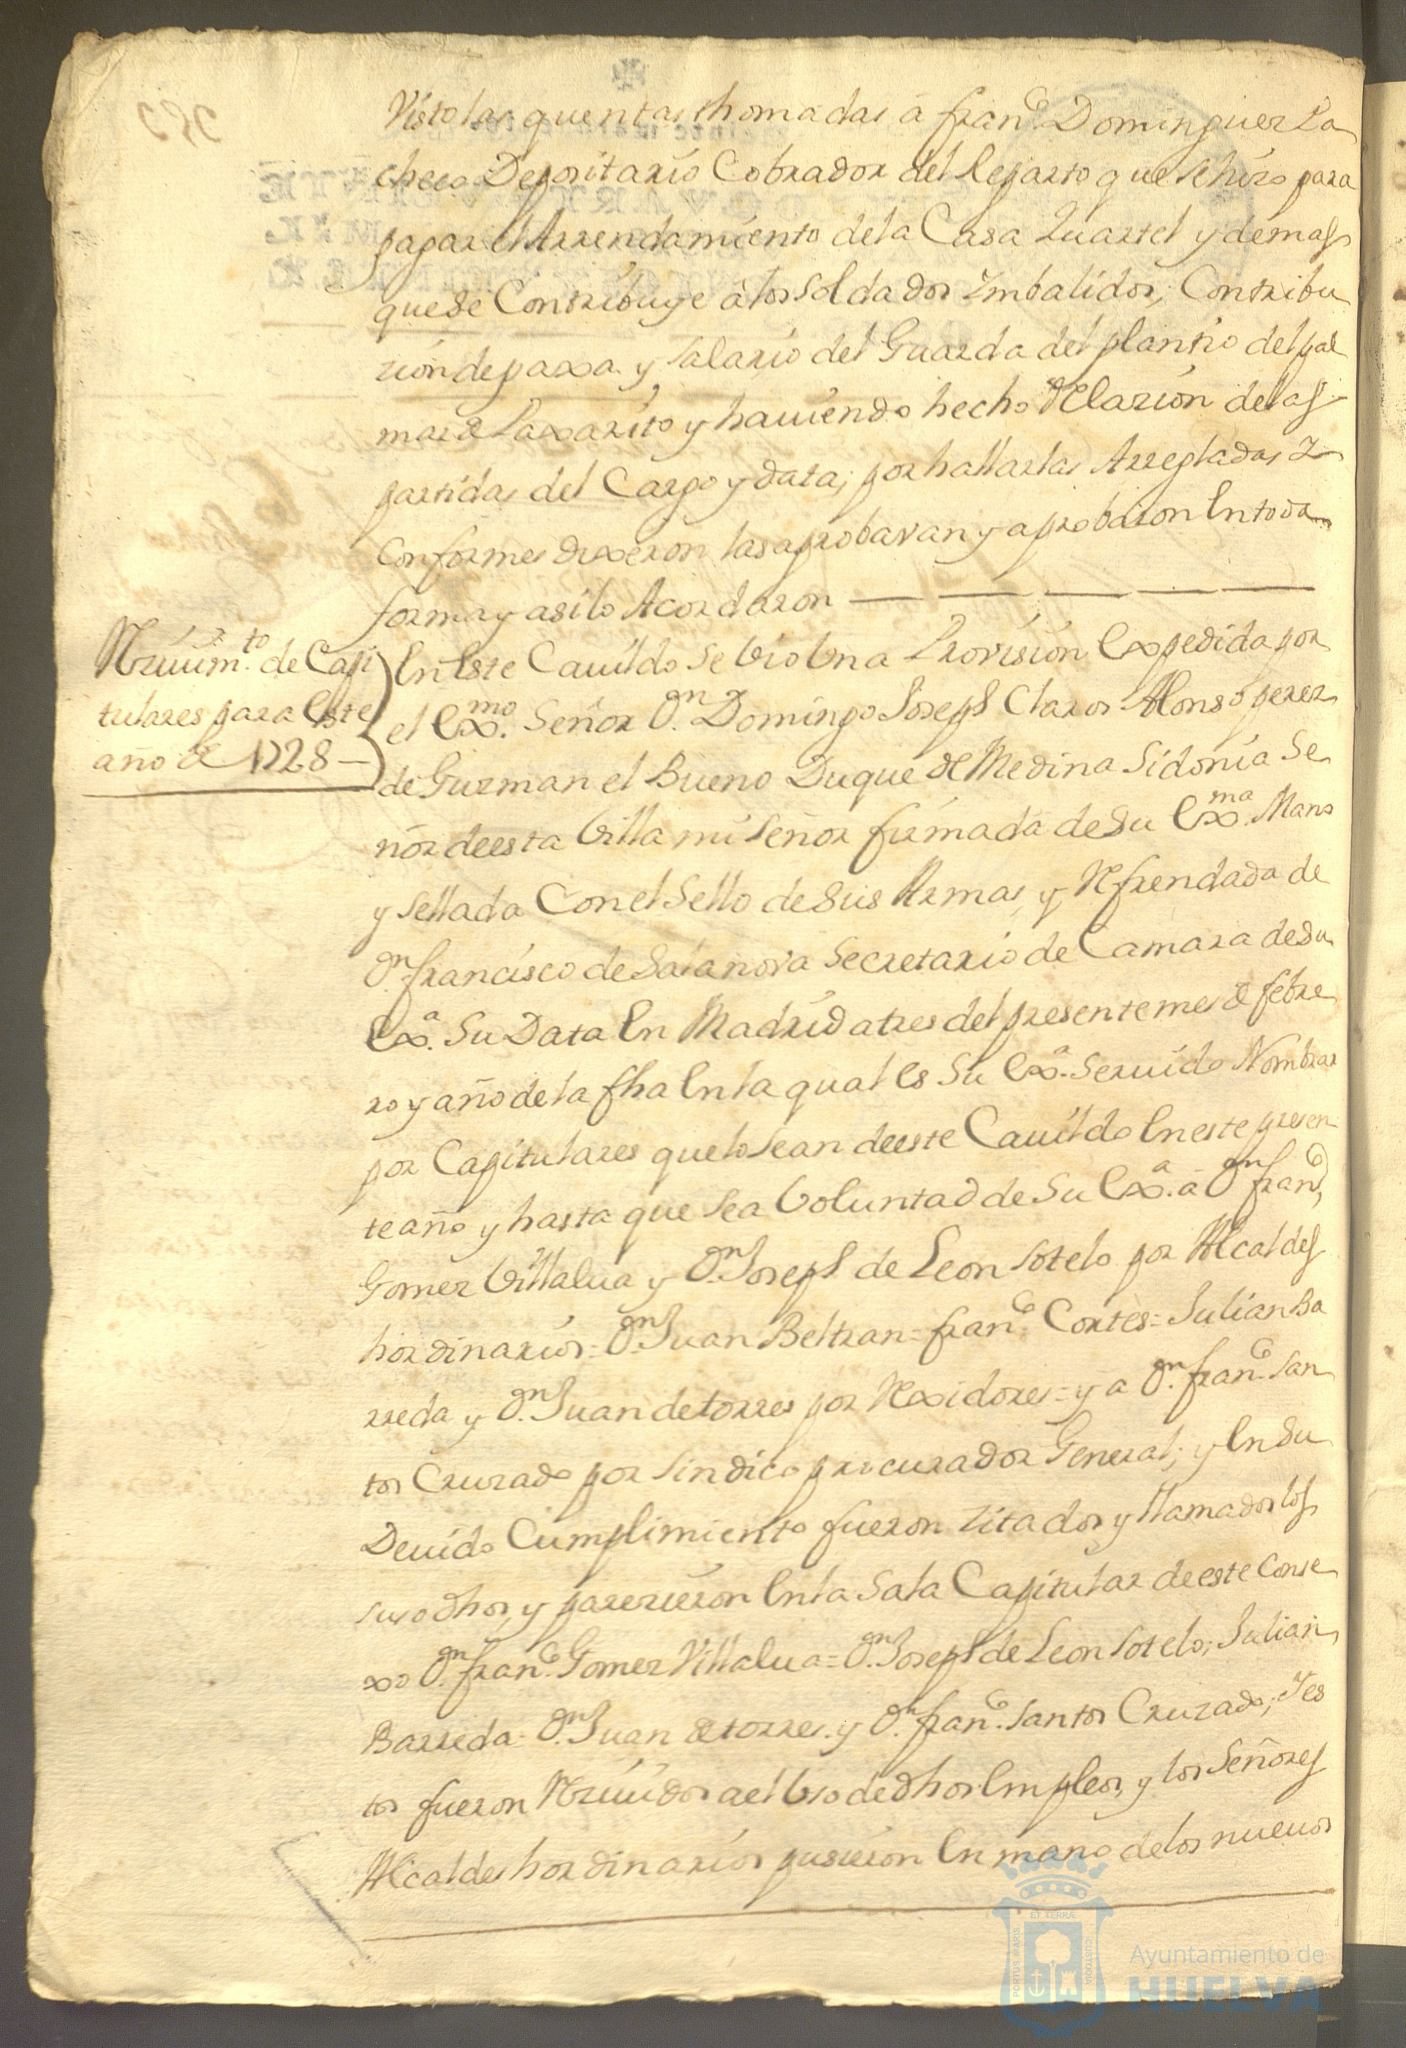 Visto las quentas thomadas â fran.co Dominguez Pa
checo Depositario Cobrador del Reparto que se hizo para
pagar el Arrendamiento de la Casa Quartel y demas
que se Contribuye â los soldados Imbalidos, Contribu
zion de paxa y salario del Guarda del plantio del pal
mar de Paxarito y haviendo hecho Relazion de las
partidas del Cargo y data; por hallarlas Arregladas I
Conformes dixeron las aprobavan y aprobaron En toda
forma y asi lo Acordaron
Rzivim.to de Capi
tulares para Este
año de 1728
En Este Cavildo se Vio Vna Provision Expedida por
el Ex.mo Señor D.n Domingo Joseph Claros Alonso perez
de Guzman el Bueno Duque de Medina Sidonia Se
ñor de esta Villa mi señor firmada de su Ex.ma Mano
y sellada Con el Sello de sus Armas, y Refrendada de
D.n francisco de Salanova Secretario de Camara de su
Ex.a Su Data En Madrid a tres del presente mes de febre
ro y año de la fha En la qual Es Su Ex.a Servido Nombrar
por Capitulares que lo sean de este Cavildo En este presen
te año y hasta que sea Voluntad de Su Ex.a â D.n fran.co
Gomez Villalva y D.n Joseph de Leon Sotelo por Alcaldes
hordinarios = D.n Juan Beltran = fran.co Cortes = Julian Ba
rreda y D.n Juan de torres por Rexidores = y a D.n fran.co San
tos Cruzado por sindico procurador General; y En Su
Devido Cumplimiento fueron zitados y llamados los
susodhos, y parezieron En la Sala Capitular de este Conse
xo D.n fran.co Gomez Villalva = D.n Joseph de Leon Sotelo; Julian
Barreda = D.n Juan de torres = y D.n fran.co Santos Cruzado; Y es
tos fueron Rzividos a el Vso de dhos Empleos, y los Señores
Alcaldes hordinarios pusieron En mano de los nuevos
PORTUS MARIS
ET TERRÆ
CUSTODIA
Ayuntamiento de
HUELVA